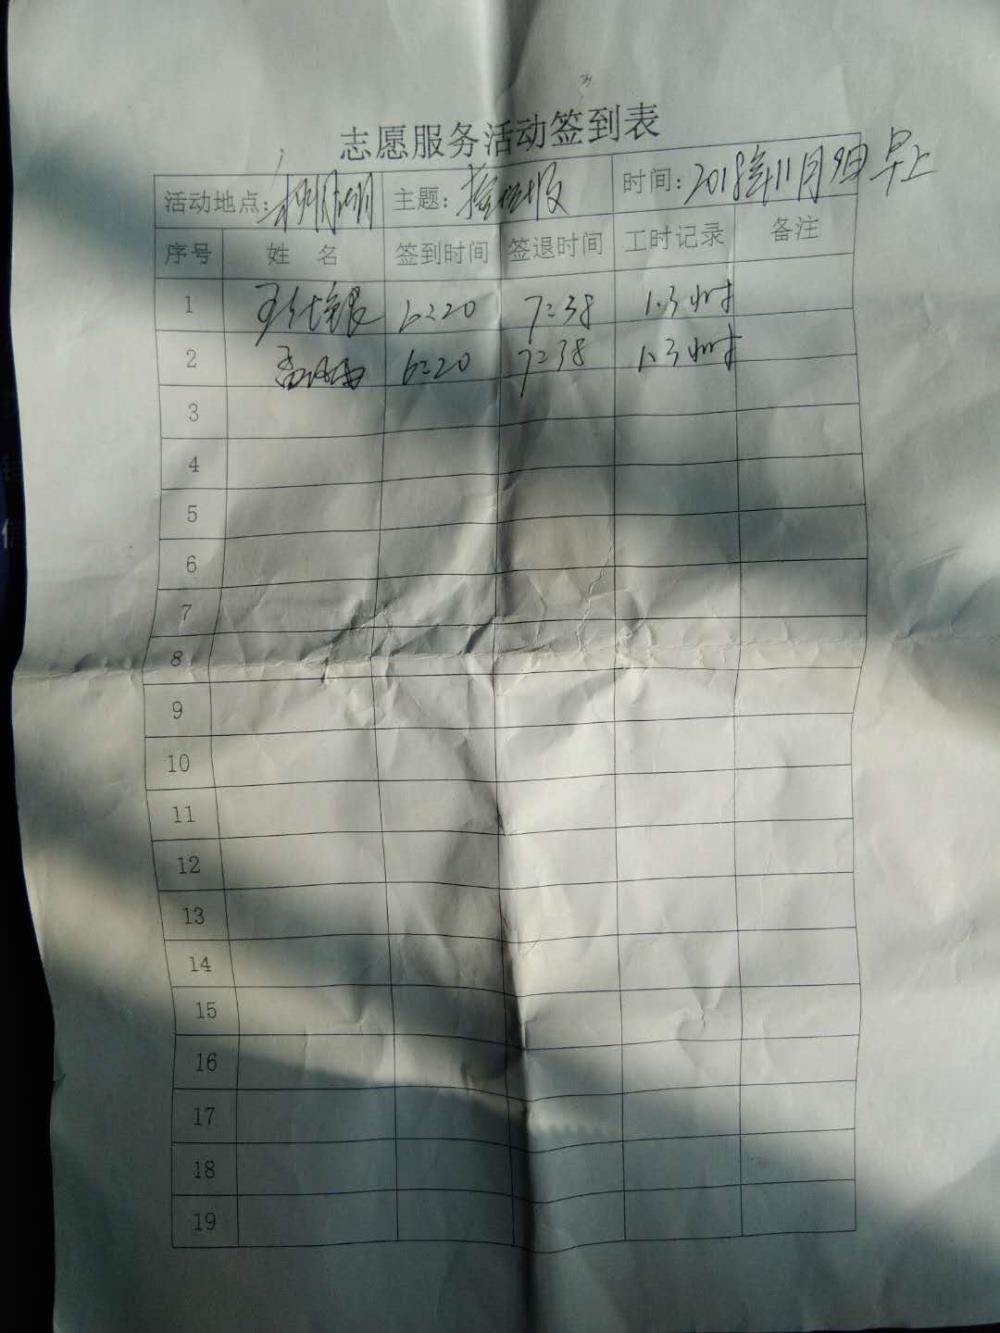 志愿服务活动签到表
活动地点: 主题: 时间: 2018年11月9日 早上
序号 姓 名 签到时间 签退时间 工时记录 备注
1 6:20 7:38 1.3小时
2 6:20 7:38 1.3小时
3
4
5
6
7
8
9
10
11
12
13
14
15
16
17
18
19